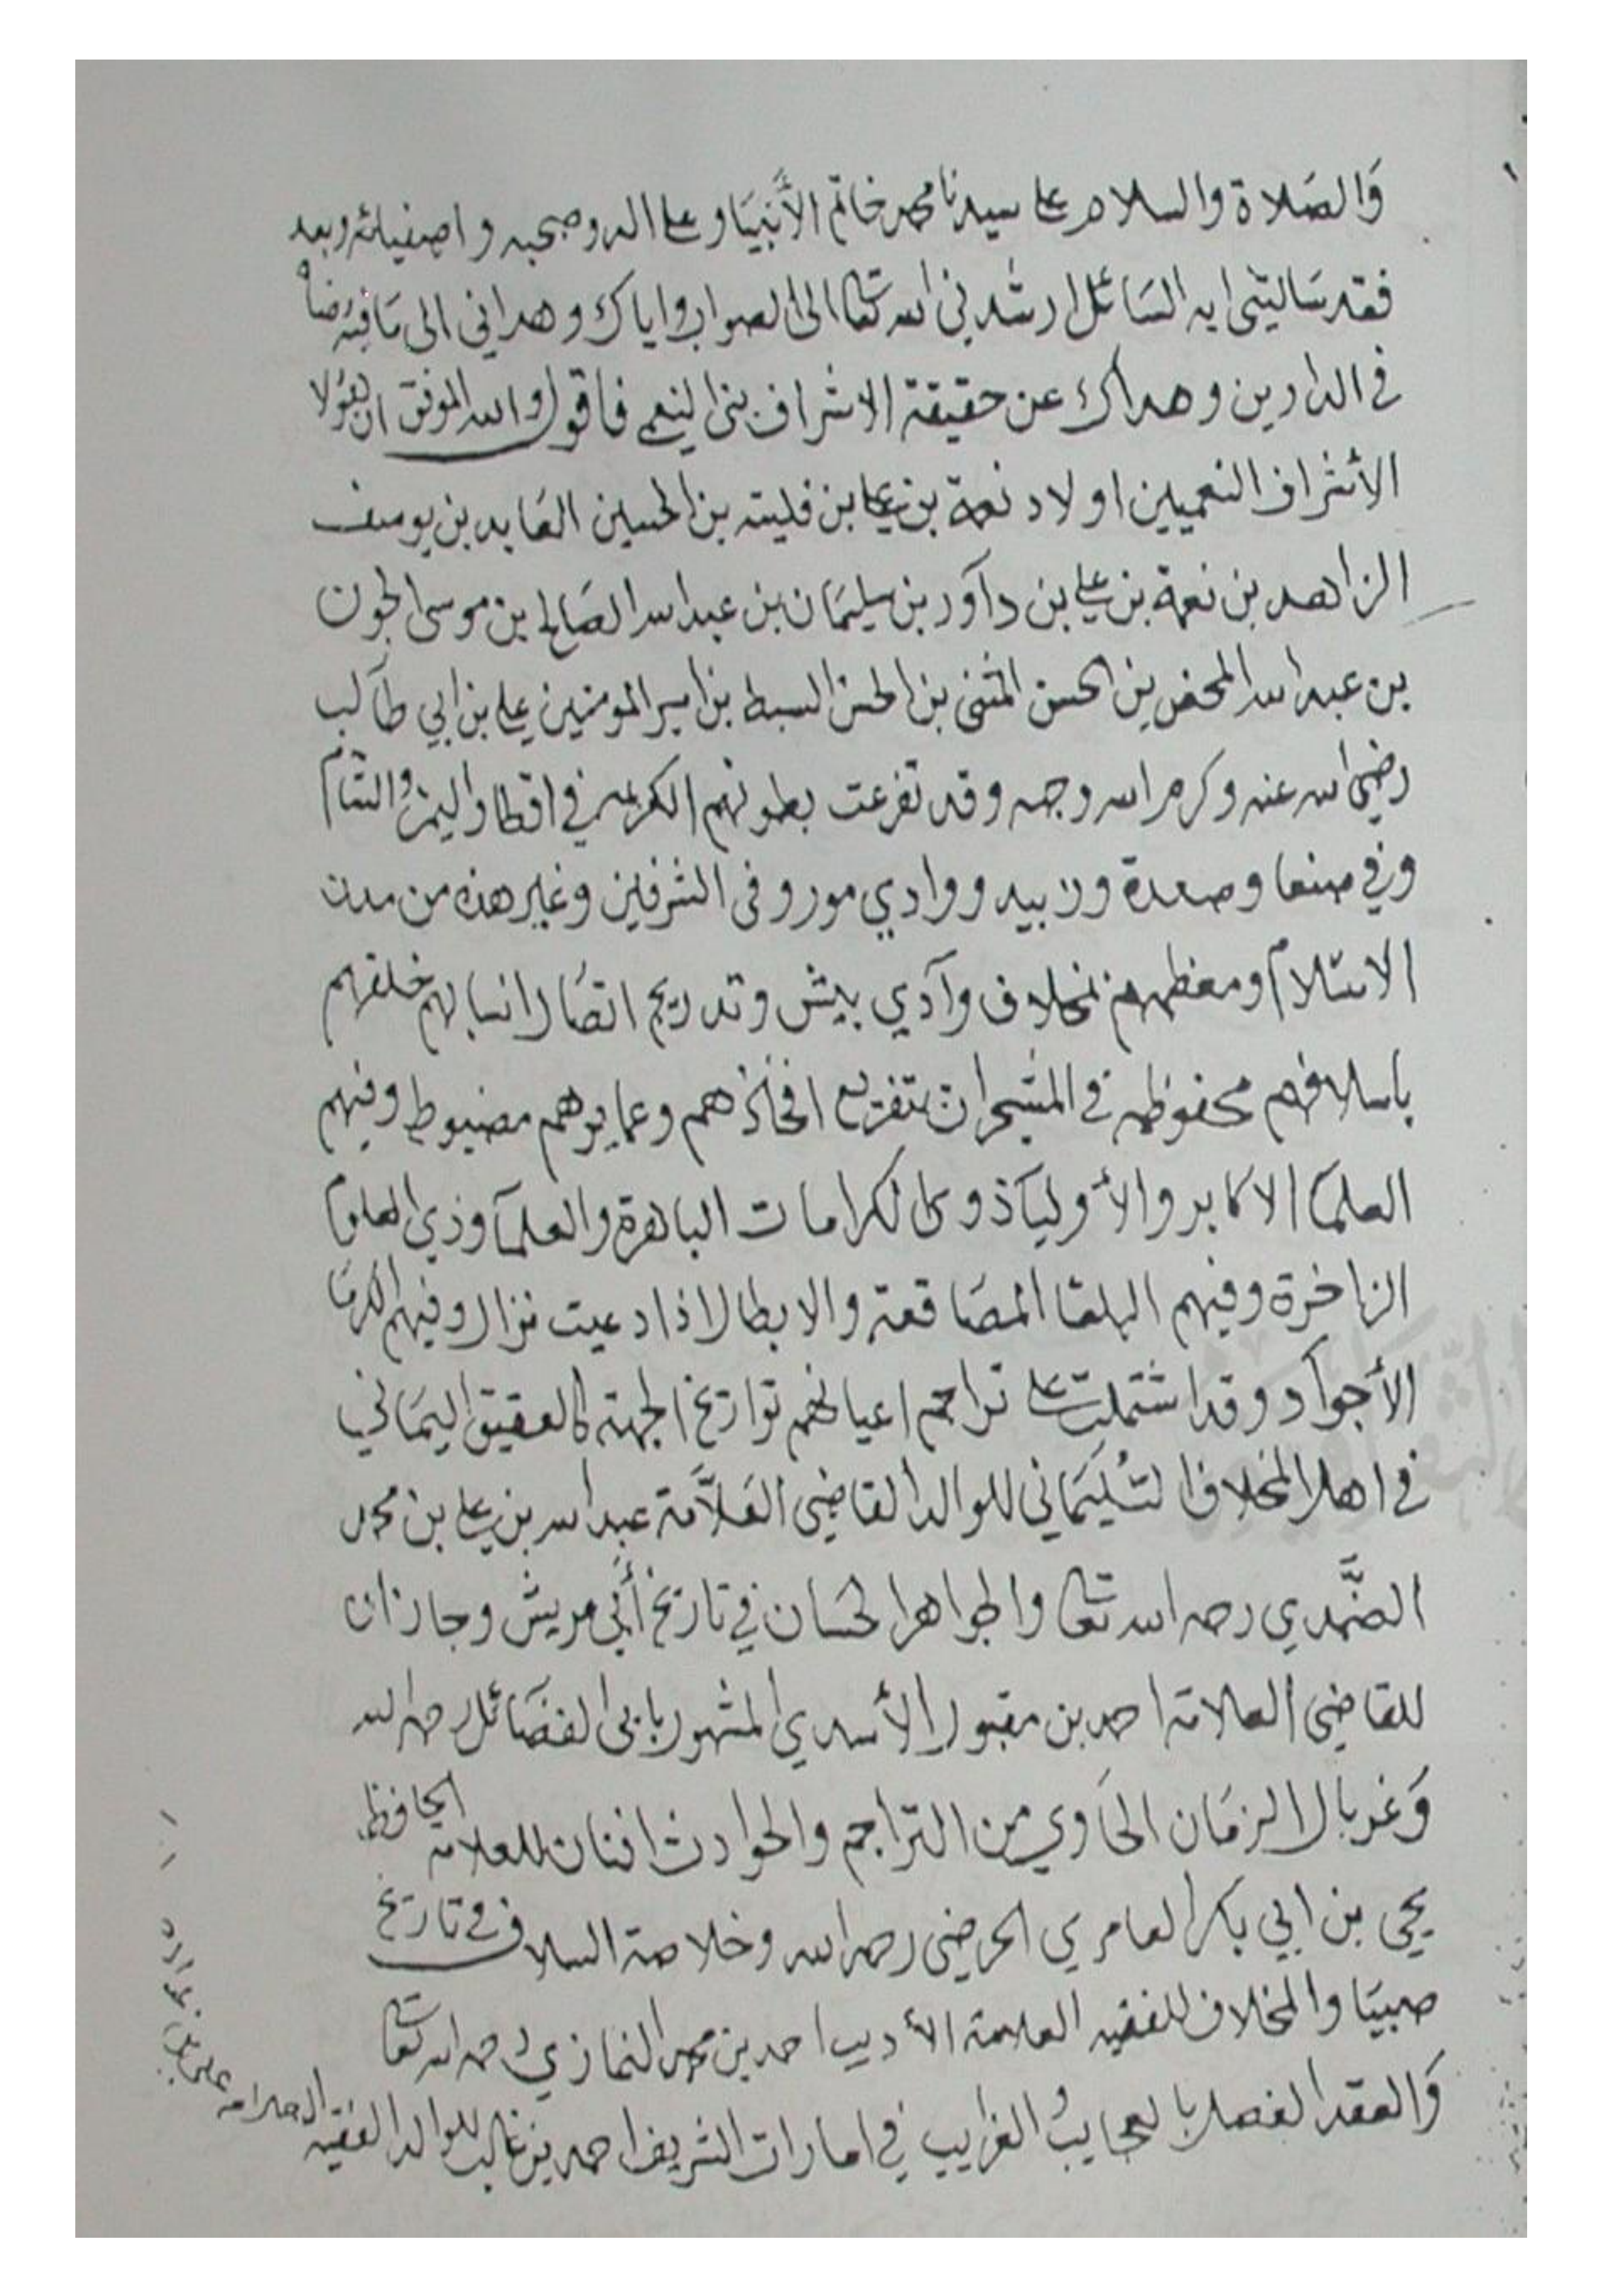 والصلاة والسلام على سيدنا محمد خاتم الأنبيا وعلى اله وصحبه واصفيائه وبعد
فقد سالتني ايه السائل ارشدني الله تعالى الى الصواب واياك وهداني الى ما فيه رضاه
في الدارين وهداك عن حقيقة الاشراف بني النعمي فاقول والله الموفق ان هؤلا
الأشراف النعميين اولاد نعمة بن علي بن فليته بن الحسين العابد بن يوسف
الزاهد بن نعمة بن علي بن داود بن سليمان بن عبد الله الصالح بن موسى الجون
بن عبد الله المحض بن الحسن المثنى بن الحسن السبط بن امير المومنين علي بن ابي طالب
رضي الله عنه وكرم الله وجهه وقد تفرعت بطونهم الكريمه في اقطار اليمن والشام
وفي صنعا وصعدة وزبيد ووادي مور وفى الشرفين وغير هذه من مدن
الاسلام ومعظمهم بمخلاف وادي بيش وتدريج اتصال انسابهم خلفهم
باسلافهم محفوظه في المشجرات بتفريع افخاذهم وعمايرهم مضبوط وفيهم
العلما الاكابر والأوليا ذوى الكرامات الباهرة والعلما وذي العلوم
الزاخرة وفيهم البلغا المصاقعة والابطال اذا دعيت نزال وفيهم الكرما
الأجواد وقد اشتملت على تراجم اعيانهم تواريخ الجهة كالعقيق اليماني
في اهل المخلاف السليماني للوالد القاضي العلامة عبد الله بن علي بن محمد
الضمدي رحمه الله تعالى والجواهر الحسان في تاريخ أبي عريش وجازان
للقاضي العلامة احمد بن مقبول الأسدي المشهور بابي الفضائل رحمه الله
وغربال الزمان الحاوي من التراجم والحوادث افنان للعلامه الحافظ
يحي بن ابي بكر العامري الحرضي رحمه الله وخلاصة السلاف في تاريخ
صبيا والمخلاف للفقيه العلامة الأديب احمد بن محمد النمازي رحمه الله تعالى
والعقد المفصل بالعجايب والغرايب في امارات الشريف احمد بن غالب للوالد الفقيه العلامه علي بن